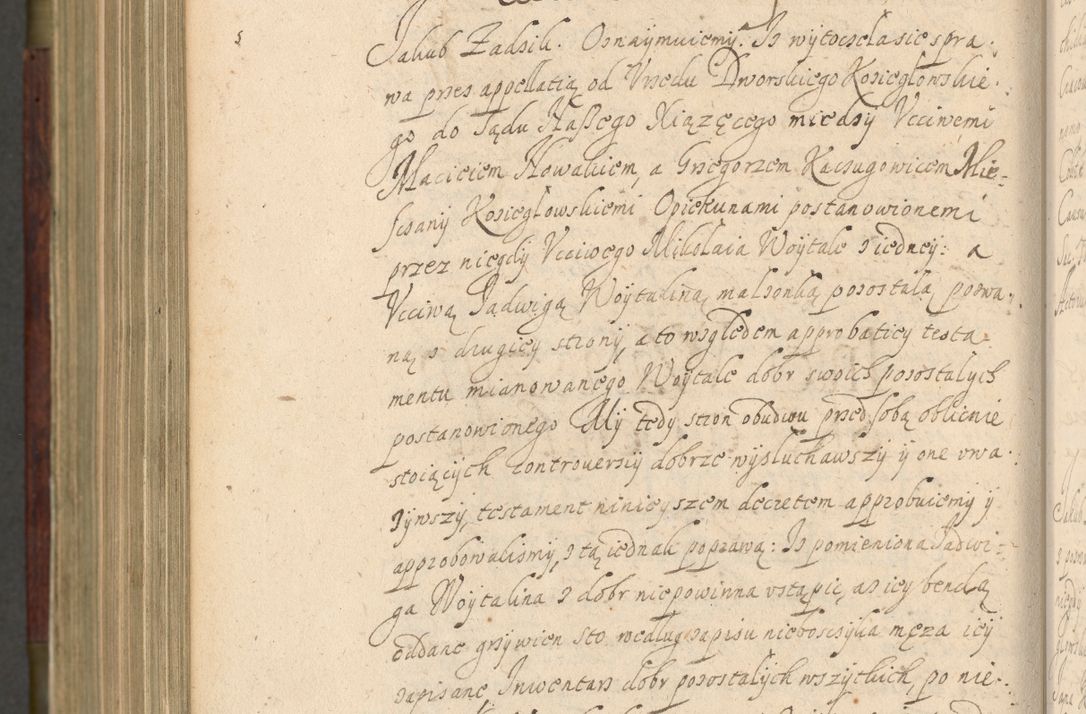 Jakub Zadzik. Oznaymuiemy. Iz wytoczela sie spra-
wa przes appellatią od Vrzedu Dworskiego Kozieglowskie-
go do Sądu Naszego Xiązęcego miedzy Vcciwemi
Macieiem Nowakiem, a Grzegorzem Kaczugowicem Mie-
sczany Kozieglowskiemi Opiekunami postanowionemi
przez niegdy Vcciwego Mikolaia Woytale z iedney: a
Vcciwą Jadwigą Woytaliną malzonką pozostalą pozwa-
ną z drugiey strony, a to wzgledem approbatiey testa-
mentu mianowanego Woytale dobr swoich pozostalych
postanowionego My tedy stron obudwu przed sobą oblicnie
stoiących controversiy dobrze wysluchawszy y one vwa-
zywszy, testament ninieyszem decretem approbuiemy y
approbowalismy, z tą iednak poprawą: Iz pomieniona Jadwi-
ga Woytalina z dobr niepowinna vstąpic, az iey bendą
oddane grzywien sto wedlug zapisu nieboszczyka męza iey
zapisane Inwentarz dobr pozostalych wszytkich, po nie-